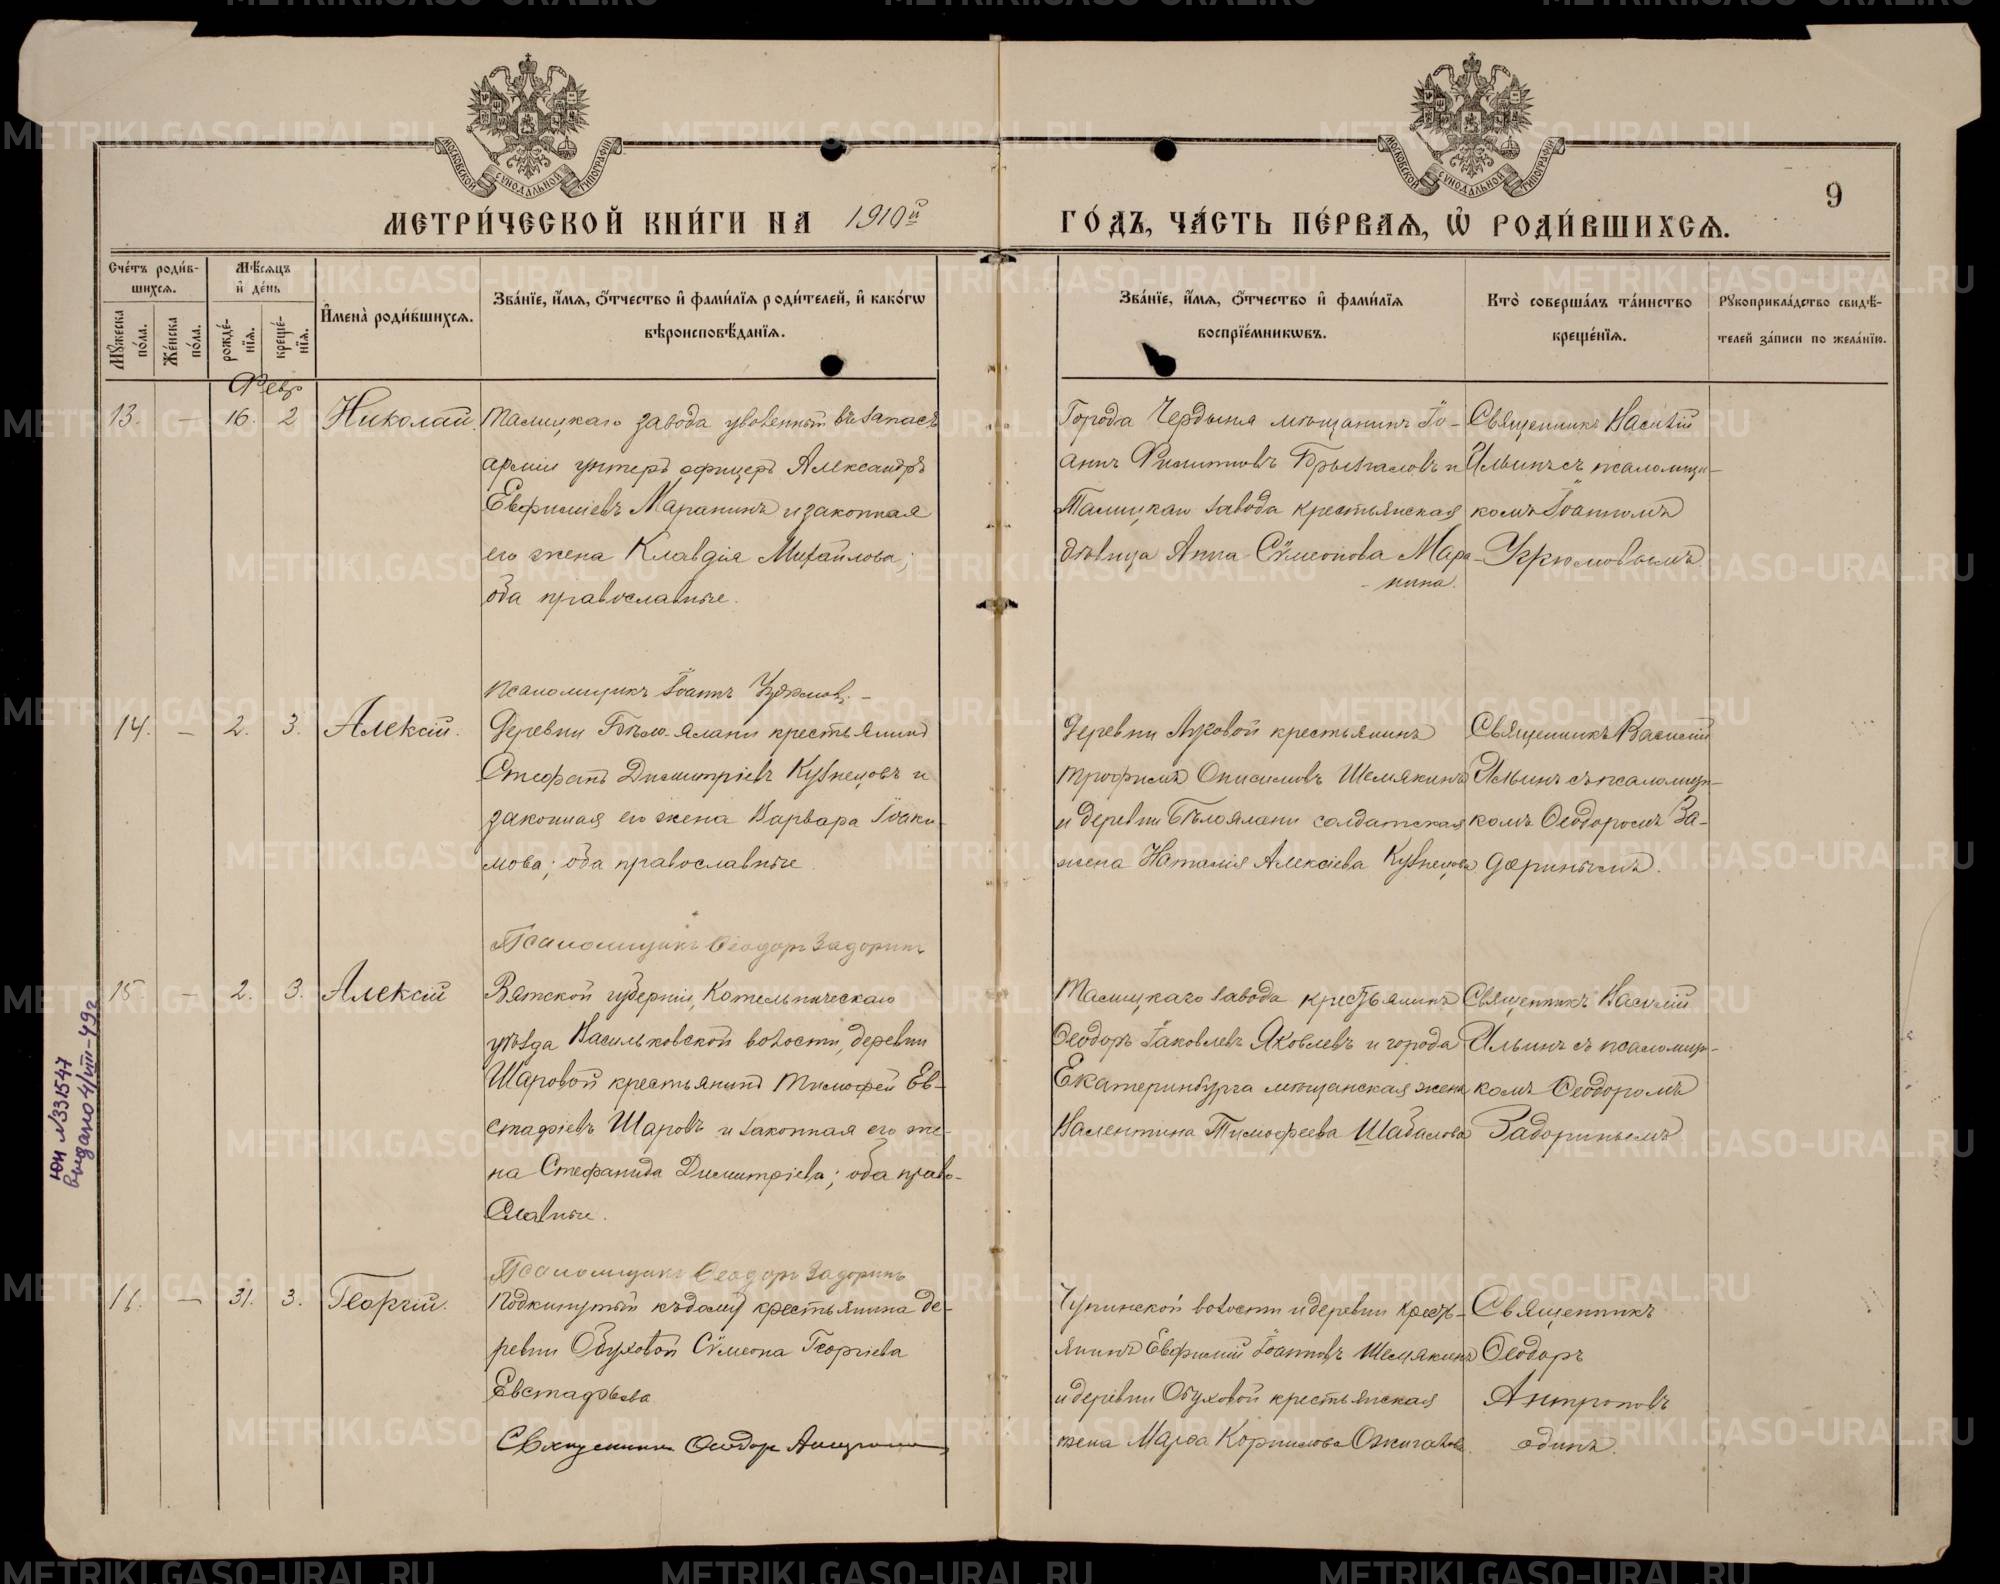 МОСКОВСКОЙ СѴНОДАЛЬНОЙ ТИПОГРАФІИ
МОСКОВСКОЙ СѴНОДАЛЬНОЙ ТИПОГРАФІИ
9
МЕТРИ́ЧЕСКОЙ КНИ́ГИ НА 1910й ГО́ДЪ, ЧА́СТЬ ПЕ́РВАЯ, Ѡ РОДИ́ВШИХСЯ.
Сче́тъ роди́в-
шихся.
Му́жеска по́ла.
Же́нска по́ла.
Мѣ́сяцъ и де́нь
рожде́нїя.
креще́нїя.
Имена̀ роди́вшихся.
Зва́нїе, и́мя, о́тчество и фами́лїя роди́телей, и како́гѡ
вѣроисповѣ́данїя.
Зва́нїе, и́мя, о́тчество и фами́лїя
воспрїе́мникѡвъ.
Кто̀ соверша́лъ та́инство
креще́нїя.
Рукоприкла́дство свидѣ́-
телей за́писи по жела́нїю.
Февр
13. — 16. 2 Николай.
Талицкаго завода уволенный въ запасъ
арміи унтеръ офицеръ Александръ
Евфиміевъ Маранинъ и законная
его жена Клавдія Михайлова;
оба православные.
Города Чердыня мѣщанинъ Іо-
аннъ Филипповъ Брызгаловъ и
Талицкаго завода крестьянская
дѣвица Анна Сѵмеонова Мара-
нина.
Священникъ Василій
Ильинъ съ псаломщи-
комъ Іоанномъ
Угрюмовымъ
Псаломщикъ Іоаннъ Угрюмовъ.
14. — 2. 3. Алексій.
Деревни Бѣло-ялани крестьянинъ
Стефанъ Димитріевъ Кузнецовъ и
законная его жена Варвара Іоаки-
мова; оба православные
Деревни Луговой крестьянинъ
Трофимъ Онисимовъ Шемякинъ
и деревни Бѣлоялани солдатская
жена Наталія Алексіева Кузнецова
Священникъ Василій
Ильинъ съ псаломщи-
комъ Ѳеодоромъ За-
доринымъ.
Псаломщикъ Ѳеодоръ Задоринъ
15. — 2. 3. Алексій
Вятской губерніи, Котельническаго
уѣзда Васильковской волости, деревни
Шаровой крестьянинъ Тимофей Ев-
стафіевъ Шаровъ и законная его же-
на Стефанида Димитріева; оба право-
славные.
Талицкаго завода крестьянинъ
Ѳеодоръ Іаковлевъ Яковлевъ и города
Екатеринбурга мѣщанская жена
Валентина Тимофеева Шабалова
Священникъ Василій
Ильинъ съ псаломщи-
комъ Ѳеодоромъ
Задоринымъ
Псаломщикъ Ѳеодоръ Задоринъ
16. — 31. 3. Георгій.
Подкинутый къ дому крестьянина де-
ревни Обуховой Сѵмеона Георгіева
Евстафьева
Чупинской волости и деревни кресть-
янинъ Евфимій Іоанновъ Шемякинъ
и деревни Обуховой крестьянская
жена Марѳа Корнилова Ожиганова.
Священникъ
Ѳеодоръ
Антроповъ
одинъ.
Священникъ Ѳеодоръ Антропов
юп №331547
Выдано 4/VIII-49г
METRIKI.GASO-URAL.RU